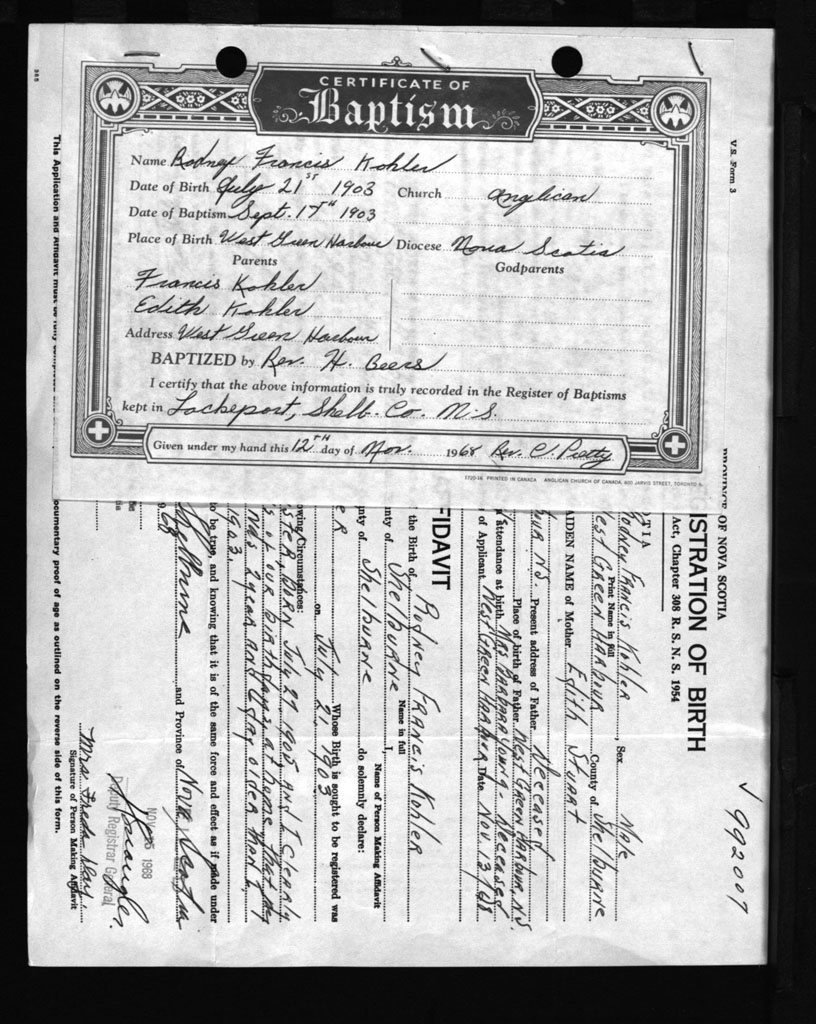 CERTIFICATE OF
Baptism
Name Rodney Francis Kohler
Date of Birth July 21st 1903 Church Anglican
Date of Baptism Sept. 17th 1903
Place of Birth West Green Harbour Diocese Nova Scotia
Parents Godparents
Francis Kohler
Edith Kohler
Address West Green Harbour
BAPTIZED by Rev. H. Beers
I certify that the above information is truly recorded in the Register of Baptisms
kept in Lockeport, Shelb. Co. N.S.
Given under my hand this 12th day of Nov. 1968 Rev. C. Pretty
1720-16 PRINTED IN CANADA ANGLICAN CHURCH OF CANADA, 600 JARVIS STREET, TORONTO
V.S. Form 3
992007
PROVINCE OF NOVA SCOTIA
ISTRATION OF BIRTH
Act, Chapter 308 R. S. N. S. 1954
OTIA
Rodney Francis Kohler, Sex Male
Print Name in full
West Green Harbour County of Shelburne
AIDEN NAME of Mother Edith Stuart
our N.S. Present address of Father Deceased
Place of birth of Father West Green Harbour N.S.
attendance at birth Mrs Barbara Young - Deceased
of Applicant West Green Harbour Date Nov. 13/68
FIDAVIT
the Birth of Rodney Francis Kohler
Name in full
nty of Shelburne I,
Name of Person Making Affidavit
nty of Shelburne do solemnly declare:
ER Whose Birth is sought to be registered was
on July 21, 1903
owing Circumstances:
STER, Born July 27, 1905, and I clearly
s of our birthdays at home that my
was 2 year and 6 day older than I,
1903.
to be true, and knowing that it is of the same force and effect as if made under
Shelburne and Province of Nova Scotia
68
NOV 1968
Deputy Registrar General
Mrs. Freda
Signature of Person Making Affidavit
ocumentary proof of age as outlined on the reverse side of this form.
This Application and Affidavit must be fully completed
385